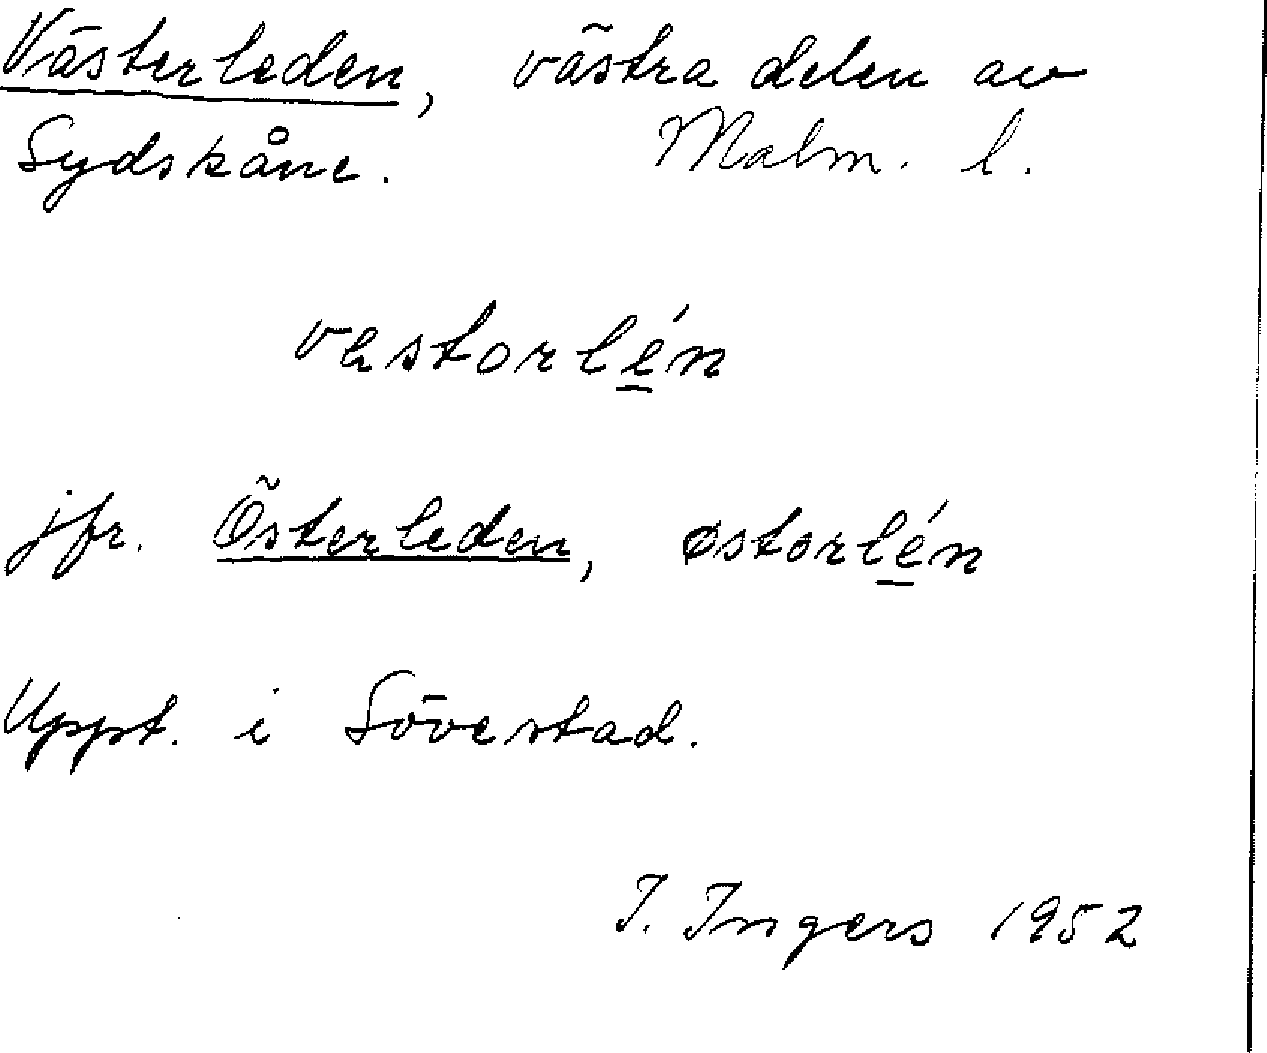 Västerleden, västra delen av
Sydskåne. Malm. l.
vestorlén
jfr. Österleden, østorlén
Uppt. i Sövestad.
I. Ingers 1952